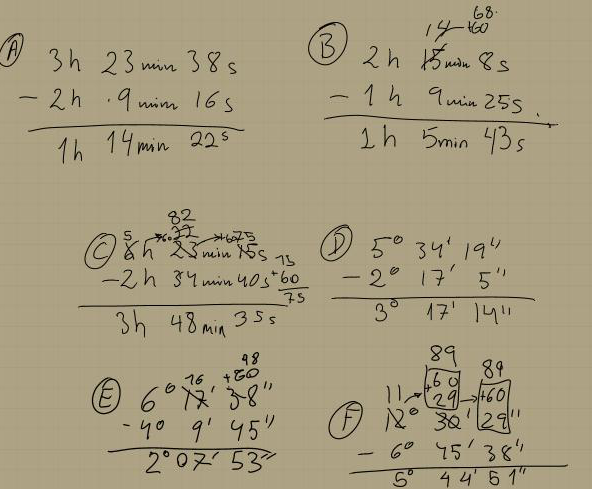 A
3h 23min 38s
- 2h 9min 16s
1h 14min 22s
B
68
14 +60
2h 15min 8s
- 1h 9min 25s
1h 5min 43s
C
82
5 +60 22 +60 75
6h 23min 15s
- 2h 34min 40s
15
+60
75
3h 48min 35s
D
5° 34' 19"
- 2° 17' 5"
3° 17' 14"
E
98
16 +60
6° 17' 38"
- 4° 9' 45"
2° 07' 53"
F
89 89
11 +60 29 +60
12° 30' 29"
- 6° 45' 38"
5° 44' 51"